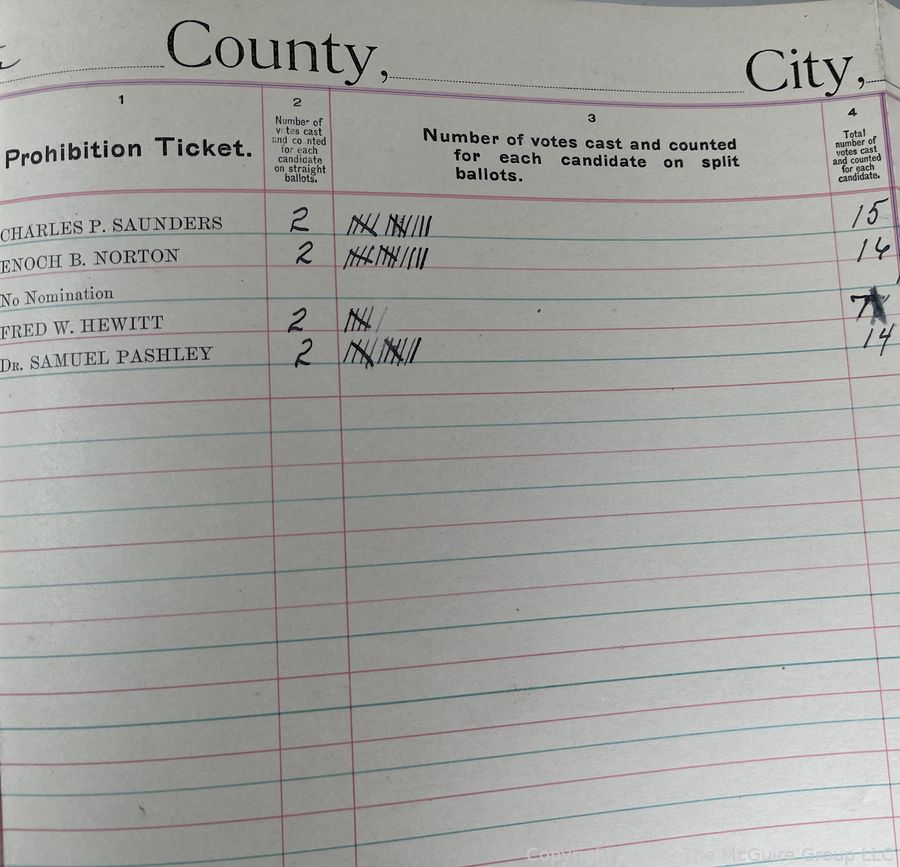 County, City,
1 2 3 4
Prohibition Ticket.
Number of
v tes cast
and co nted
for each
candidate
on straight
ballots.
Number of votes cast and counted
for each candidate on split
ballots.
Total
number of
votes cast
and counted
for each
candidate.
CHARLES P. SAUNDERS 2 15
ENOCH B. NORTON 2 16
No Nomination
FRED W. HEWITT 2 7
DR. SAMUEL PASHLEY 2 14
Copyright The McGuire Group LLC